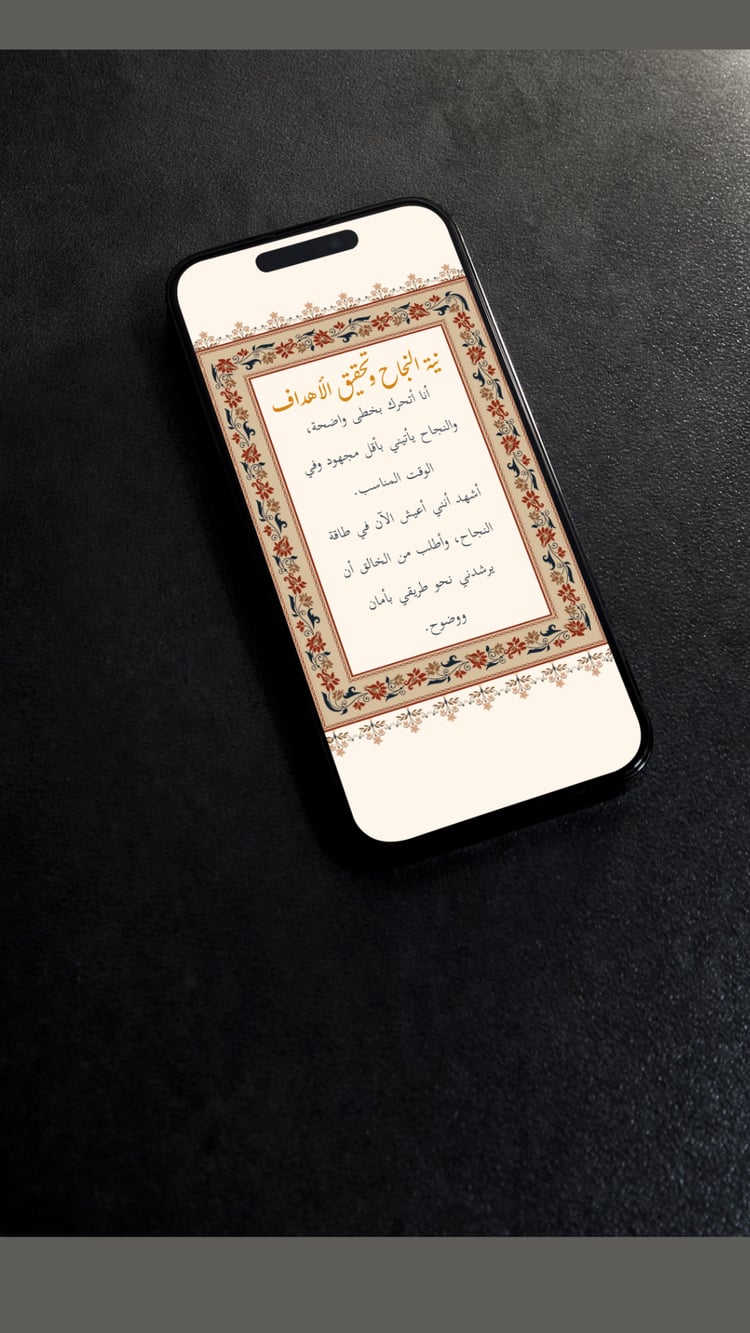 نية النجاح وتحقيق الأهداف
أنا أتحرك بخطى واضحة،
والنجاح يأتيني بأقل مجهود وفي
الوقت المناسب.
أشهد أنني أعيش الآن في طاقة
النجاح، وأطلب من الخالق أن
يرشدني نحو طريقي بأمان
ووضوح.